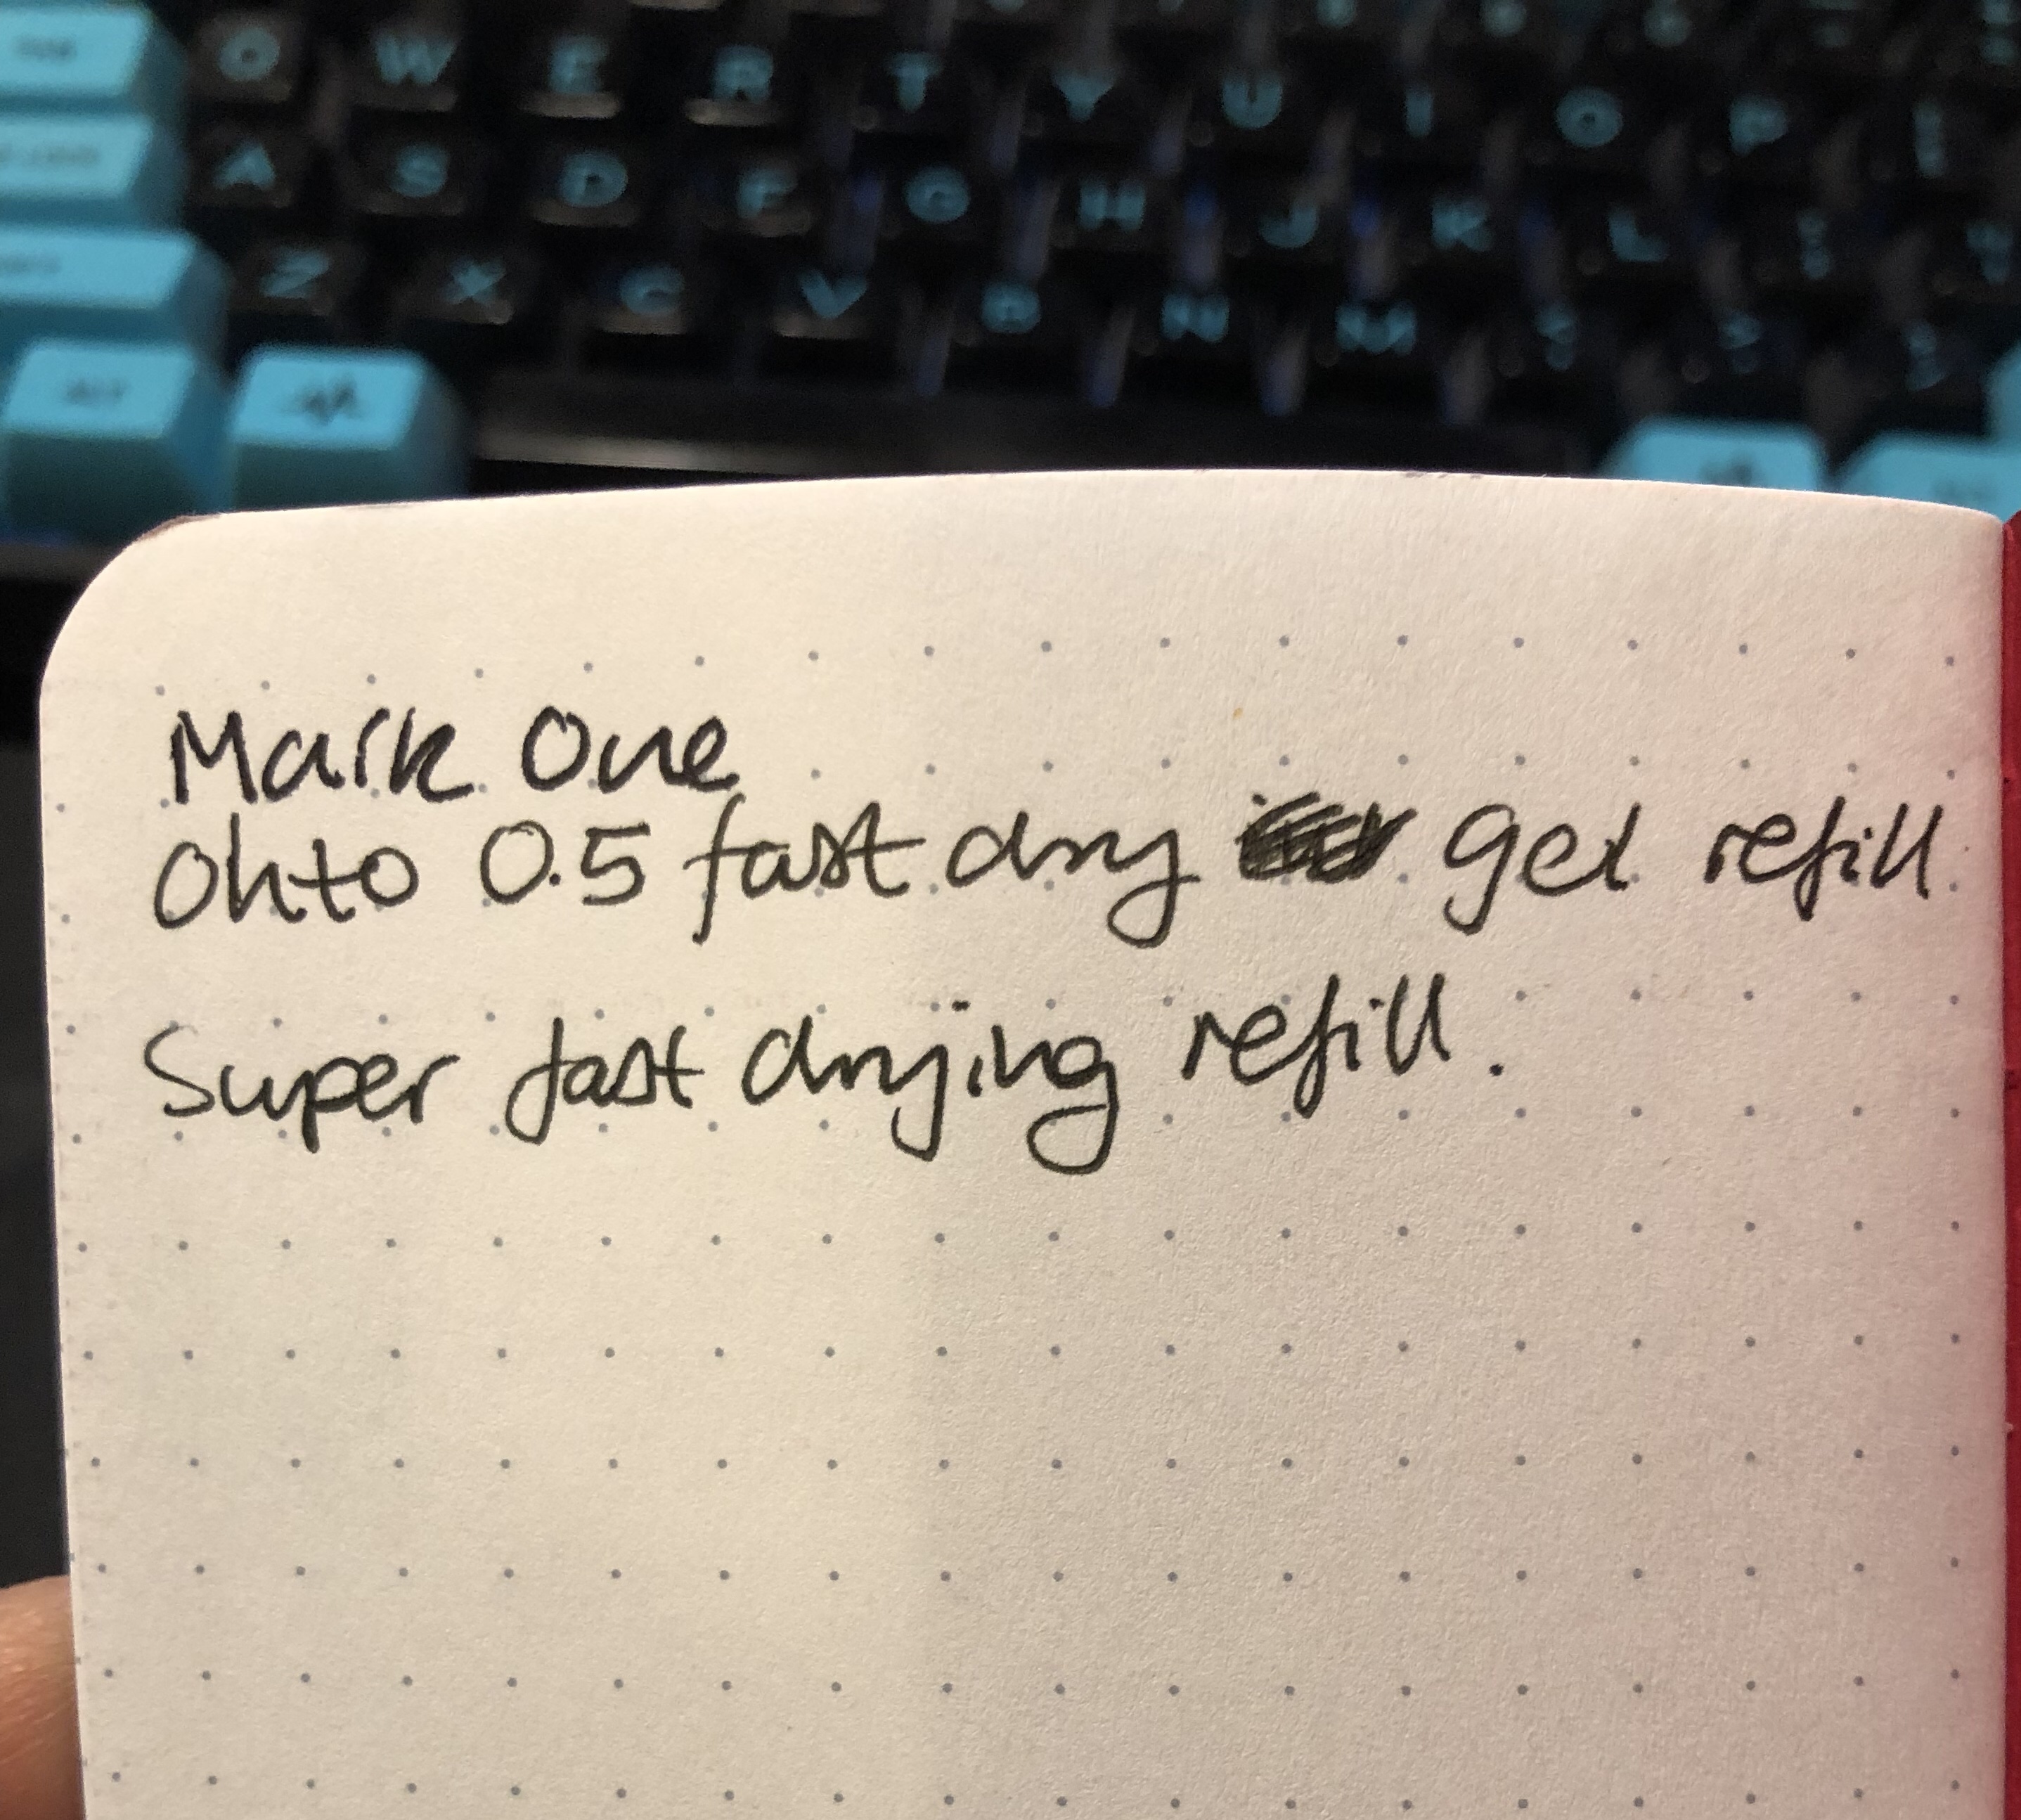 Q W E R T Y U I O P [
A S D F G H J K L ;
Z X C V B N M
ALT
Mark One
Ohto 0.5 fast dry gel refill
Super fast drying refill.